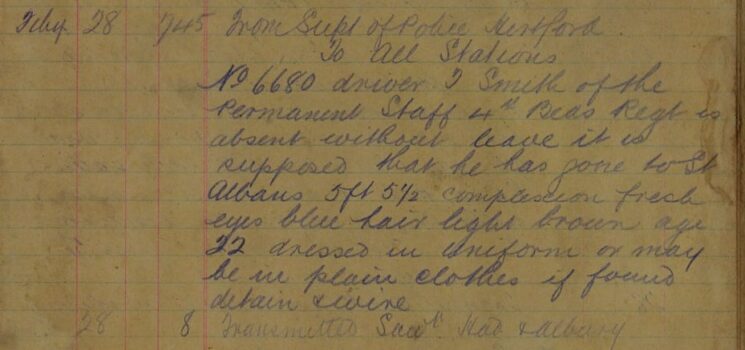 Feby 28 745 From Supt of Police Hertford.
To All Stations
No 6680 driver J Smith of the
Permanent Staff 4th Beds Regt is
absent without leave it is
supposed that he has gone to St
Albans 5ft 5½ complexion fresh
eyes blue hair light brown age
22 dressed in uniform or may
be in plain clothes if found
detain & wire
28 8 Transmitted Sawr Had & Albury